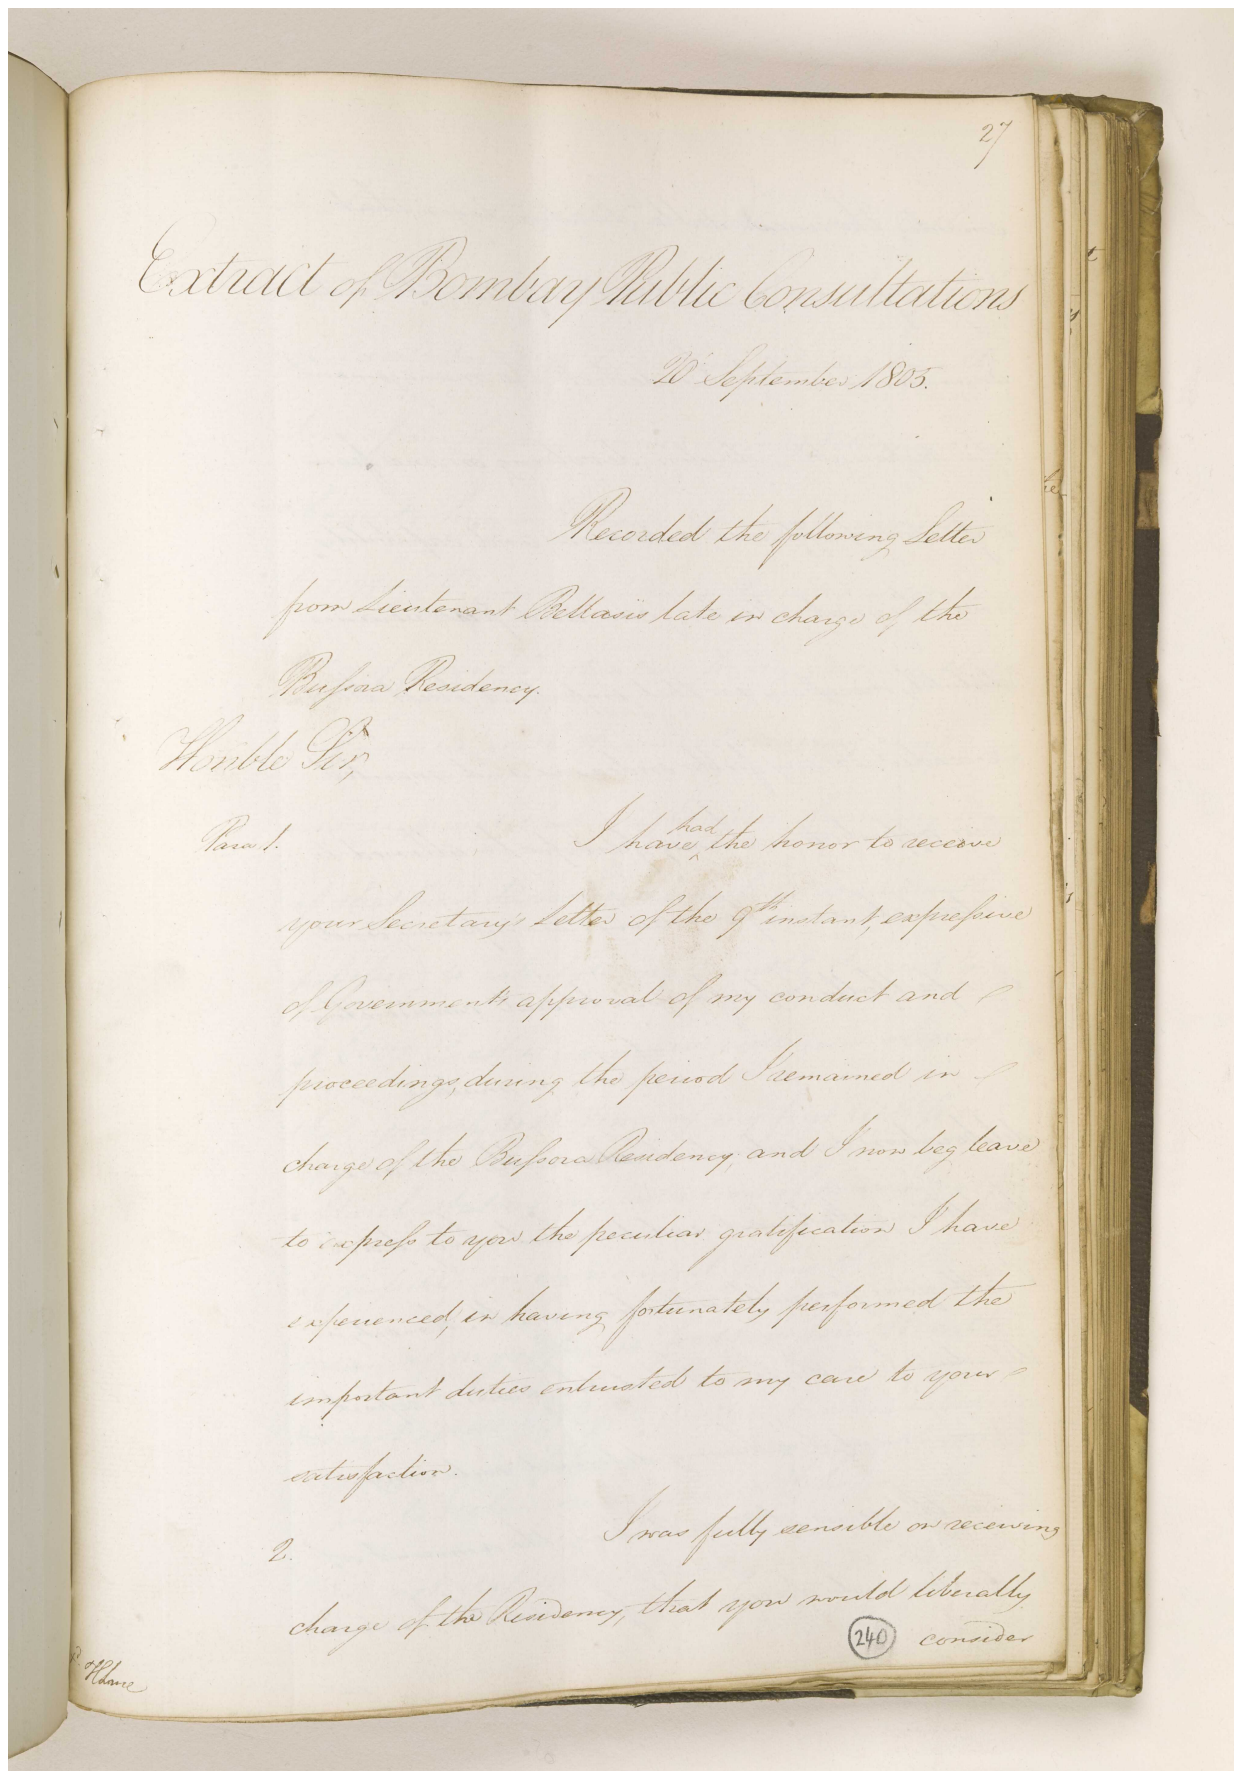 27
Extract of Bombay Public Consultations
20 September 1805.
Recorded the following Letter
from Lieutenant Bellasis late in charge of the
Bussora Residency.
Honble Sir,
Para 1. I have had the honor to receive
your Secretary's Letter of the 9th instant, expressive
of Government's approval of my conduct and
proceedings, during the period I remained in
charge of the Bussora Residency, and I now beg leave
to express to you the peculiar gratification I have
experienced, in having fortunately performed the
important duties entrusted to my care to your
satisfaction.
2. I was fully sensible on receiving
charge of the Residency, that you would liberally
240 consider